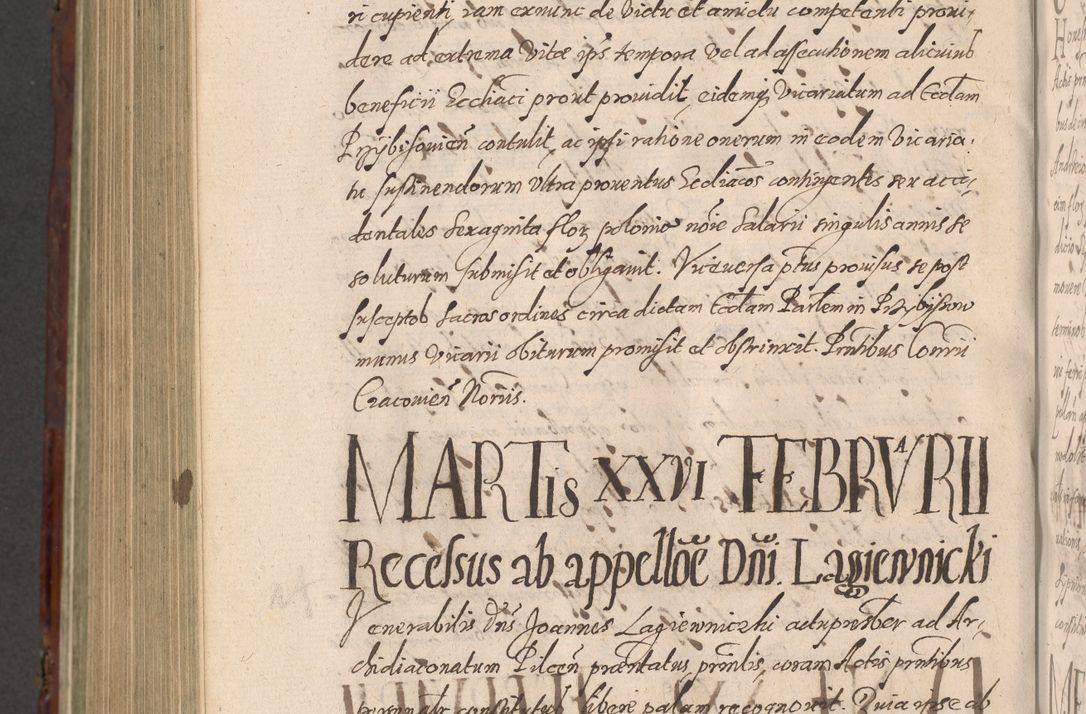 ri cupienti iam exnunc de victu et amictu competenti provi-
dere ad extrema vitæ ips tempora vel ad assecutionem alicuius
beneficii Eccliaci prout providit, eidemq Vicariatum ad Ecclam
Przybisovien contulit, ac ipsi ratione onerum in eodem Vicaria-
tu sustinendorum ultra proventus Eccliacos contingentes seu acci-
dentales sexaginta flor polonic noie salarii singulis annis se
soluturum submisit et obligavit. Viceversa ptus provisus se post
susceptos sacros ordines circa dictam Ecclam Parlem in Przybyssow
munus Vicarii obiturum promisit et obstrinxit. Pntibus Conrii
Cracovien Noriis.
MARTis XXVI FEBRVARII
Recessus ab appelloe Dni. Lagiewnicki
Venerabilis Dns Joannes Lagiewniczki actu prbter ad Ar-
chidiaconatum Pilcen præntatus, prinlis, coram Actis pntibus
personalr constitutus libere palam recognovit. Quia ipse ab